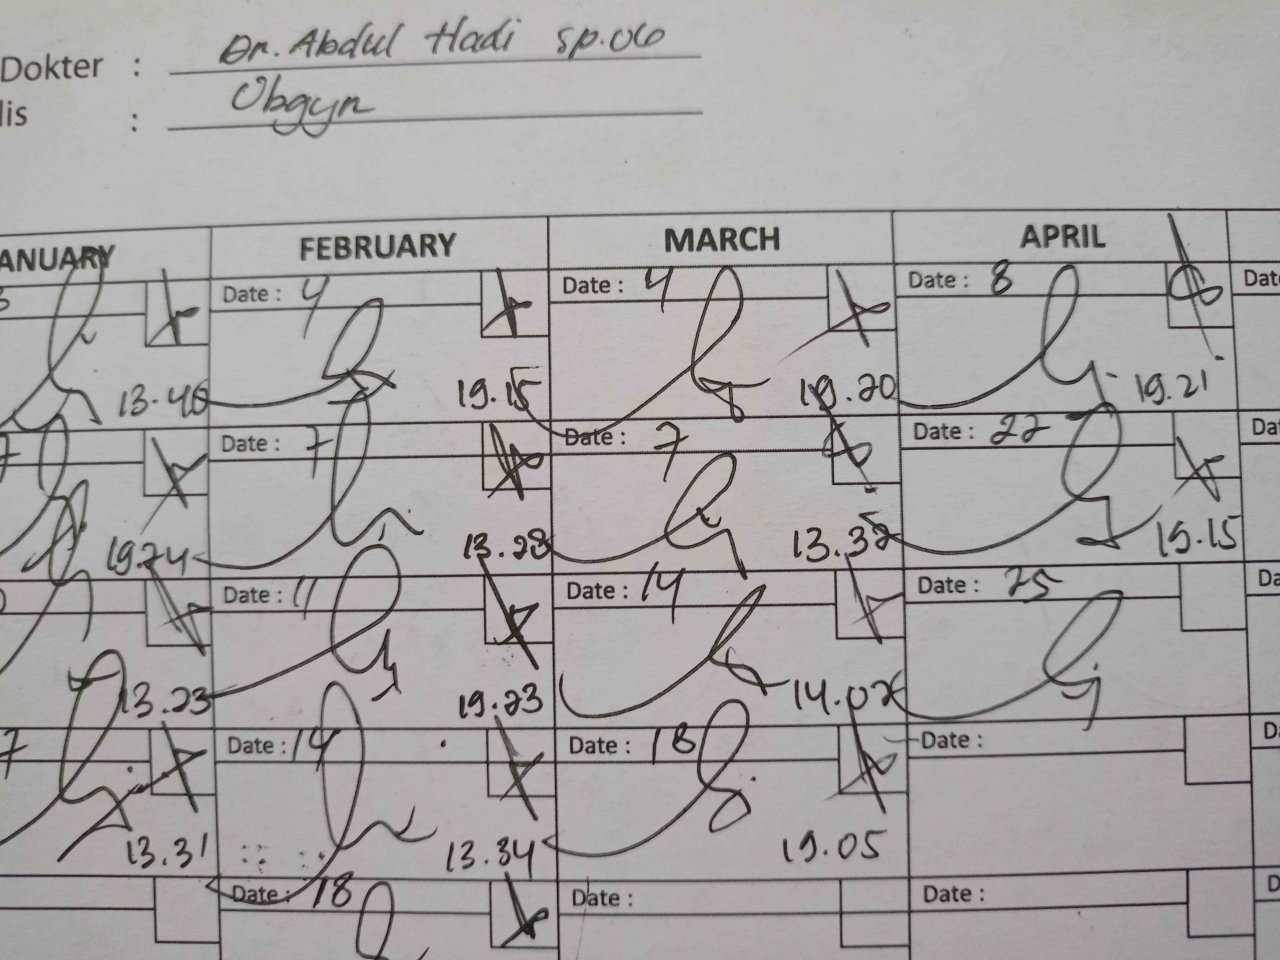 Dokter : Dr. Abdul Hadi sp.OG
lis : Obgyn
ANUARY FEBRUARY MARCH APRIL
3 Date : 4 Date : 4 Date : 8 Dat
13.46 19.15 19.20 19.21
7 Date : 7 Date : 7 Date : 22 Dat
19.24 13.28 13.32 19.15
Date : 11 Date : 14 Date : 25 Da
13.23 19.23 14.02
7 Date : 14 Date : 18 Date : Da
13.31 13.34 19.05
Date : 18 Date : Date : D